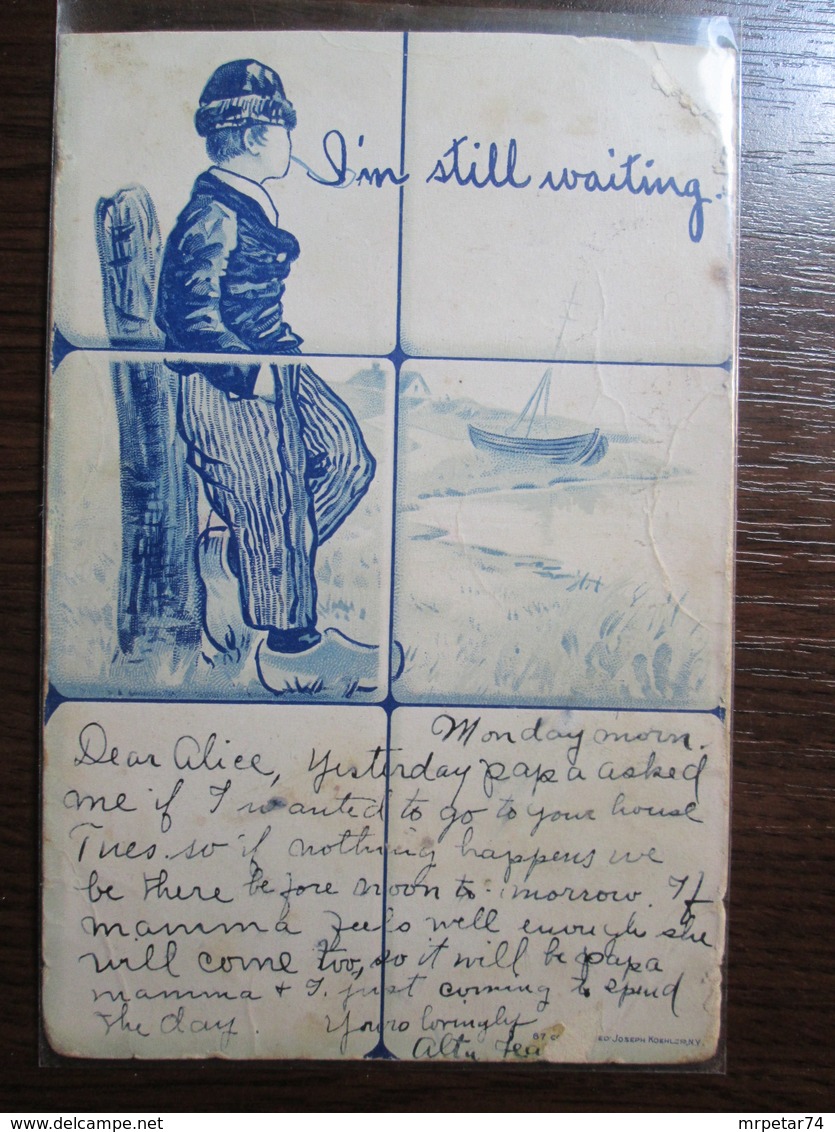 I'm still waiting.
Monday morn.
Dear Alice, Yesterday papa asked
me if I wanted to go to your house
Tues. so if nothing happens we
be there before noon to-morrow. If
mamma feels well enough she
will come too, so it will be papa
mamma + I. just coming to spend
the day. Yours lovingly
JOSEPH KOEHLER, N.Y.
mrpetar74